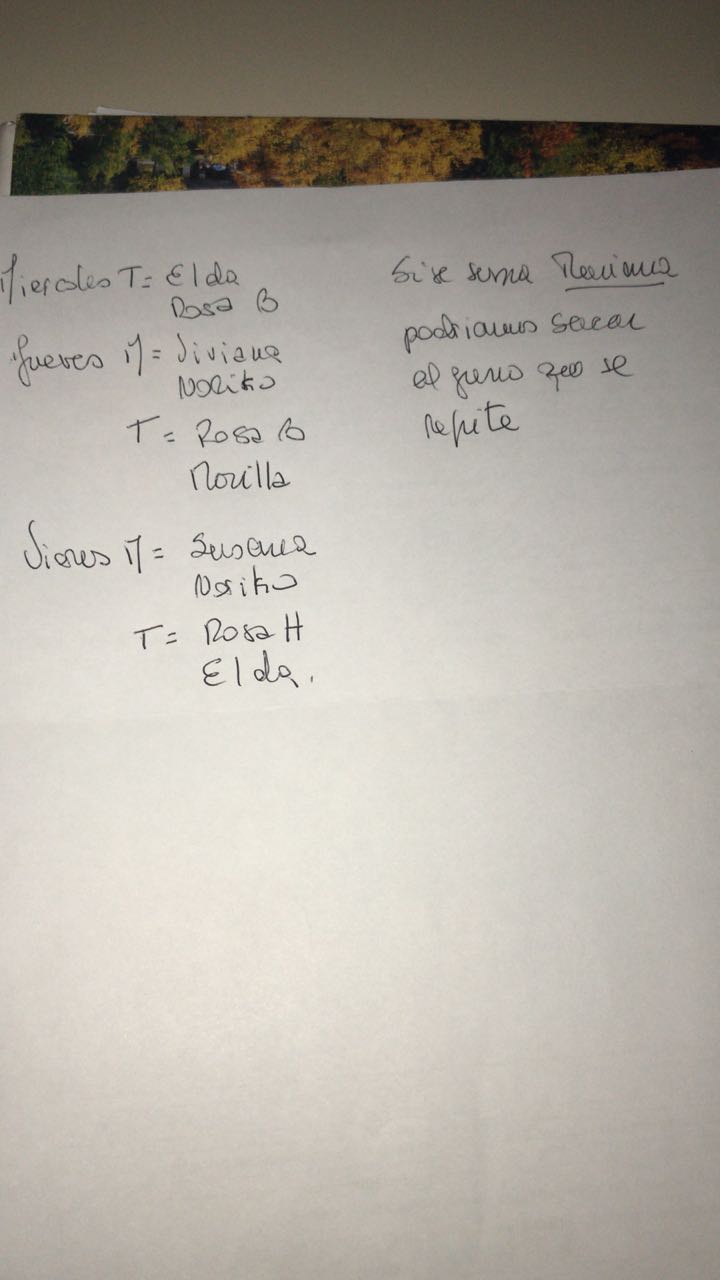 Miercoles T= Elda
Rosa B
Jueves M = Viviana
Noriko
T = Rosa B
Morilla
Viernes M = Susana
Noriko
T = Rosa H
Elda.
Si se suma
podriamos sacar
al que se
repite